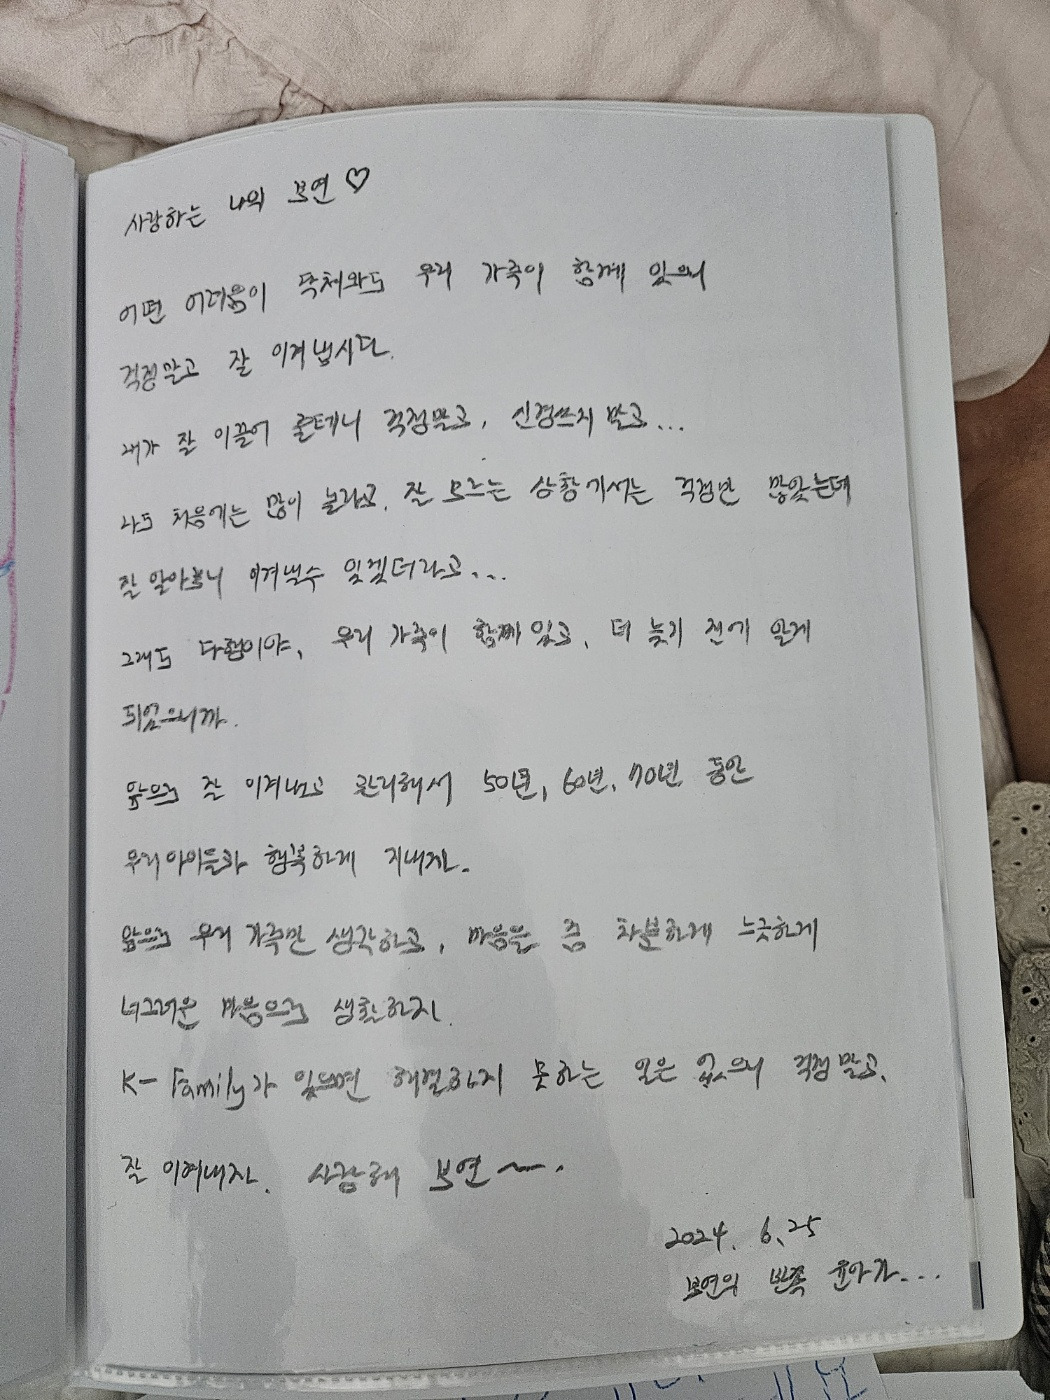 사랑하는 나의 보연 ♡
어떤 어려움이 닥쳐와도 우리 가족이 함께 있으니
걱정말고 잘 이겨 냅시다.
내가 잘 이끌어 줄테니 걱정말고, 신경쓰지 말고...
나도 처음에는 많이 놀라고, 잘 모르는 상황에서는 걱정만 많았는데
잘 알아보니 이겨낼수 있겠더라고...
그래도 다행이야, 우리 가족이 함께 있고, 더 늦기 전에 알게
되었으니까.
앞으로 잘 이겨내고 관리해서 50년, 60년, 70년 동안
우리 아이들과 행복하게 지내자.
앞으로 우리 가족만 생각하고, 마음을 좀 차분하게 느긋하게
너그러운 마음으로 생활하자.
K-Family가 있으면 해결하지 못하는 일은 없으니 걱정 말고,
잘 이겨내자. 사랑해 보연~.
2024. 6. 25
보연의 반쪽 윤아가...